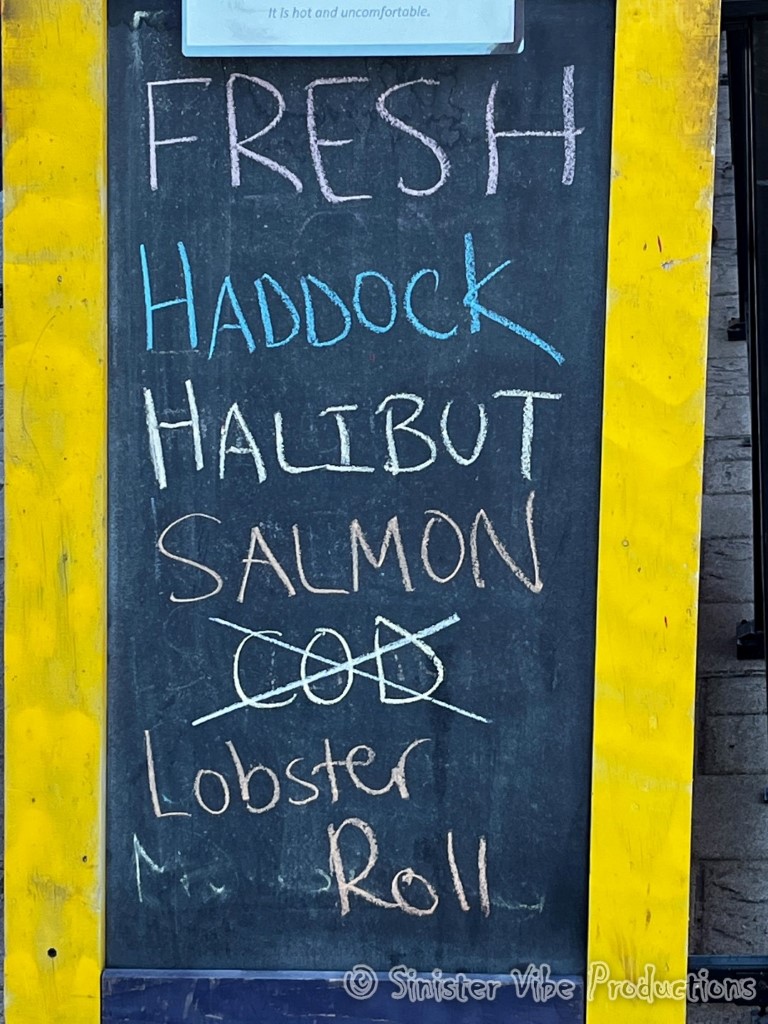 It is hot and uncomfortable.
FRESH
HADDOCK
HALIBUT
SALMON
COD
Lobster
Roll
© Sinister Vibe Productions